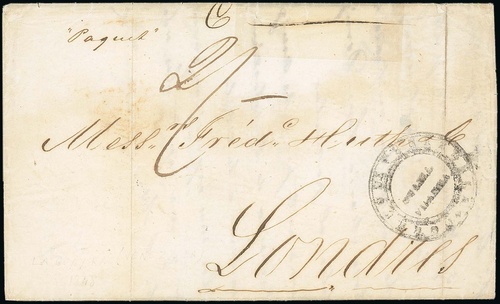 "Paquet"
2/-
Mess.rs Fréd.c Huth & C
Londres